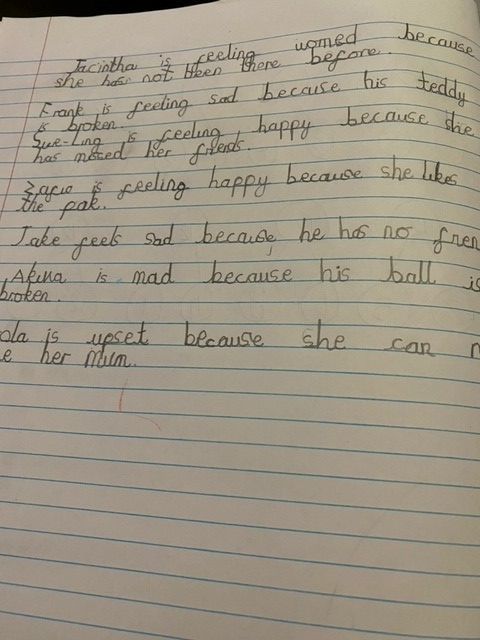 Jacintha is feeling worried because
she has not been there before.
Frank is feeling sad because his teddy
is broken.
Sue-Ling is feeling happy because she
has missed her friends.
is feeling happy because she likes
the pak.
Jake feels sad because, he has no fren
Akina is mad because his ball is
broken.
ola is upset because she can n
e her mum.